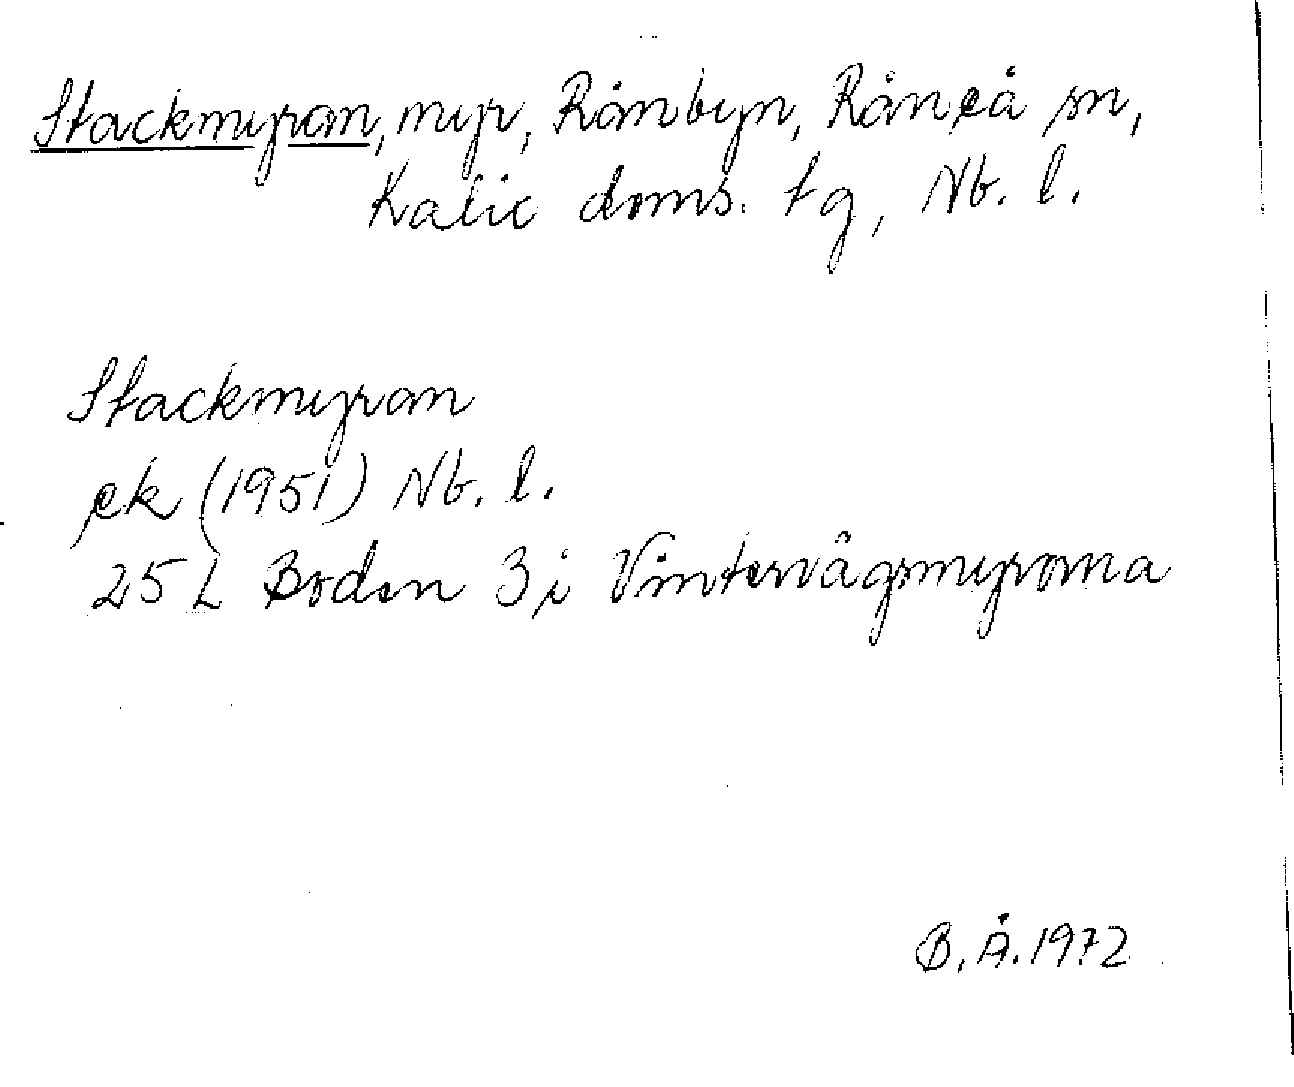 Stackmyran, myr, Rånbyn, Råneå sn,
Kalix doms. tg, Nb. l.
Stackmyran
ek (1951) Nb. l.
25 L Boden 3 i Vintervägsmyrorna
B. Å. 1972